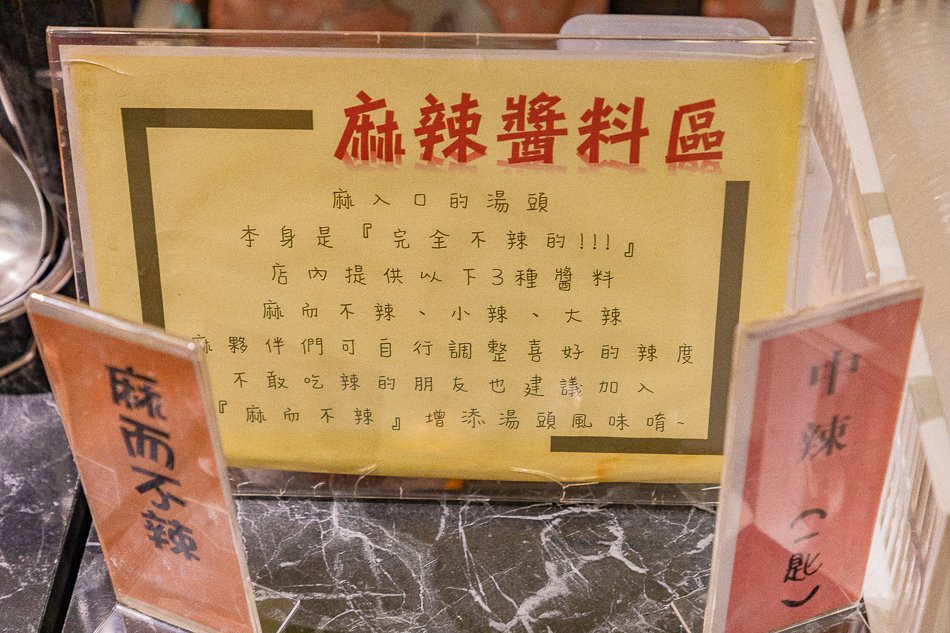 麻辣醬料區
麻入口的湯頭
本身是『完全不辣的!!!』
店內提供以下3種醬料
麻而不辣、小辣、大辣
麻夥伴們可自行調整喜好的辣度
不敢吃辣的朋友也建議加入
『麻而不辣』增添湯頭風味唷~
麻而不辣
中辣(一匙)